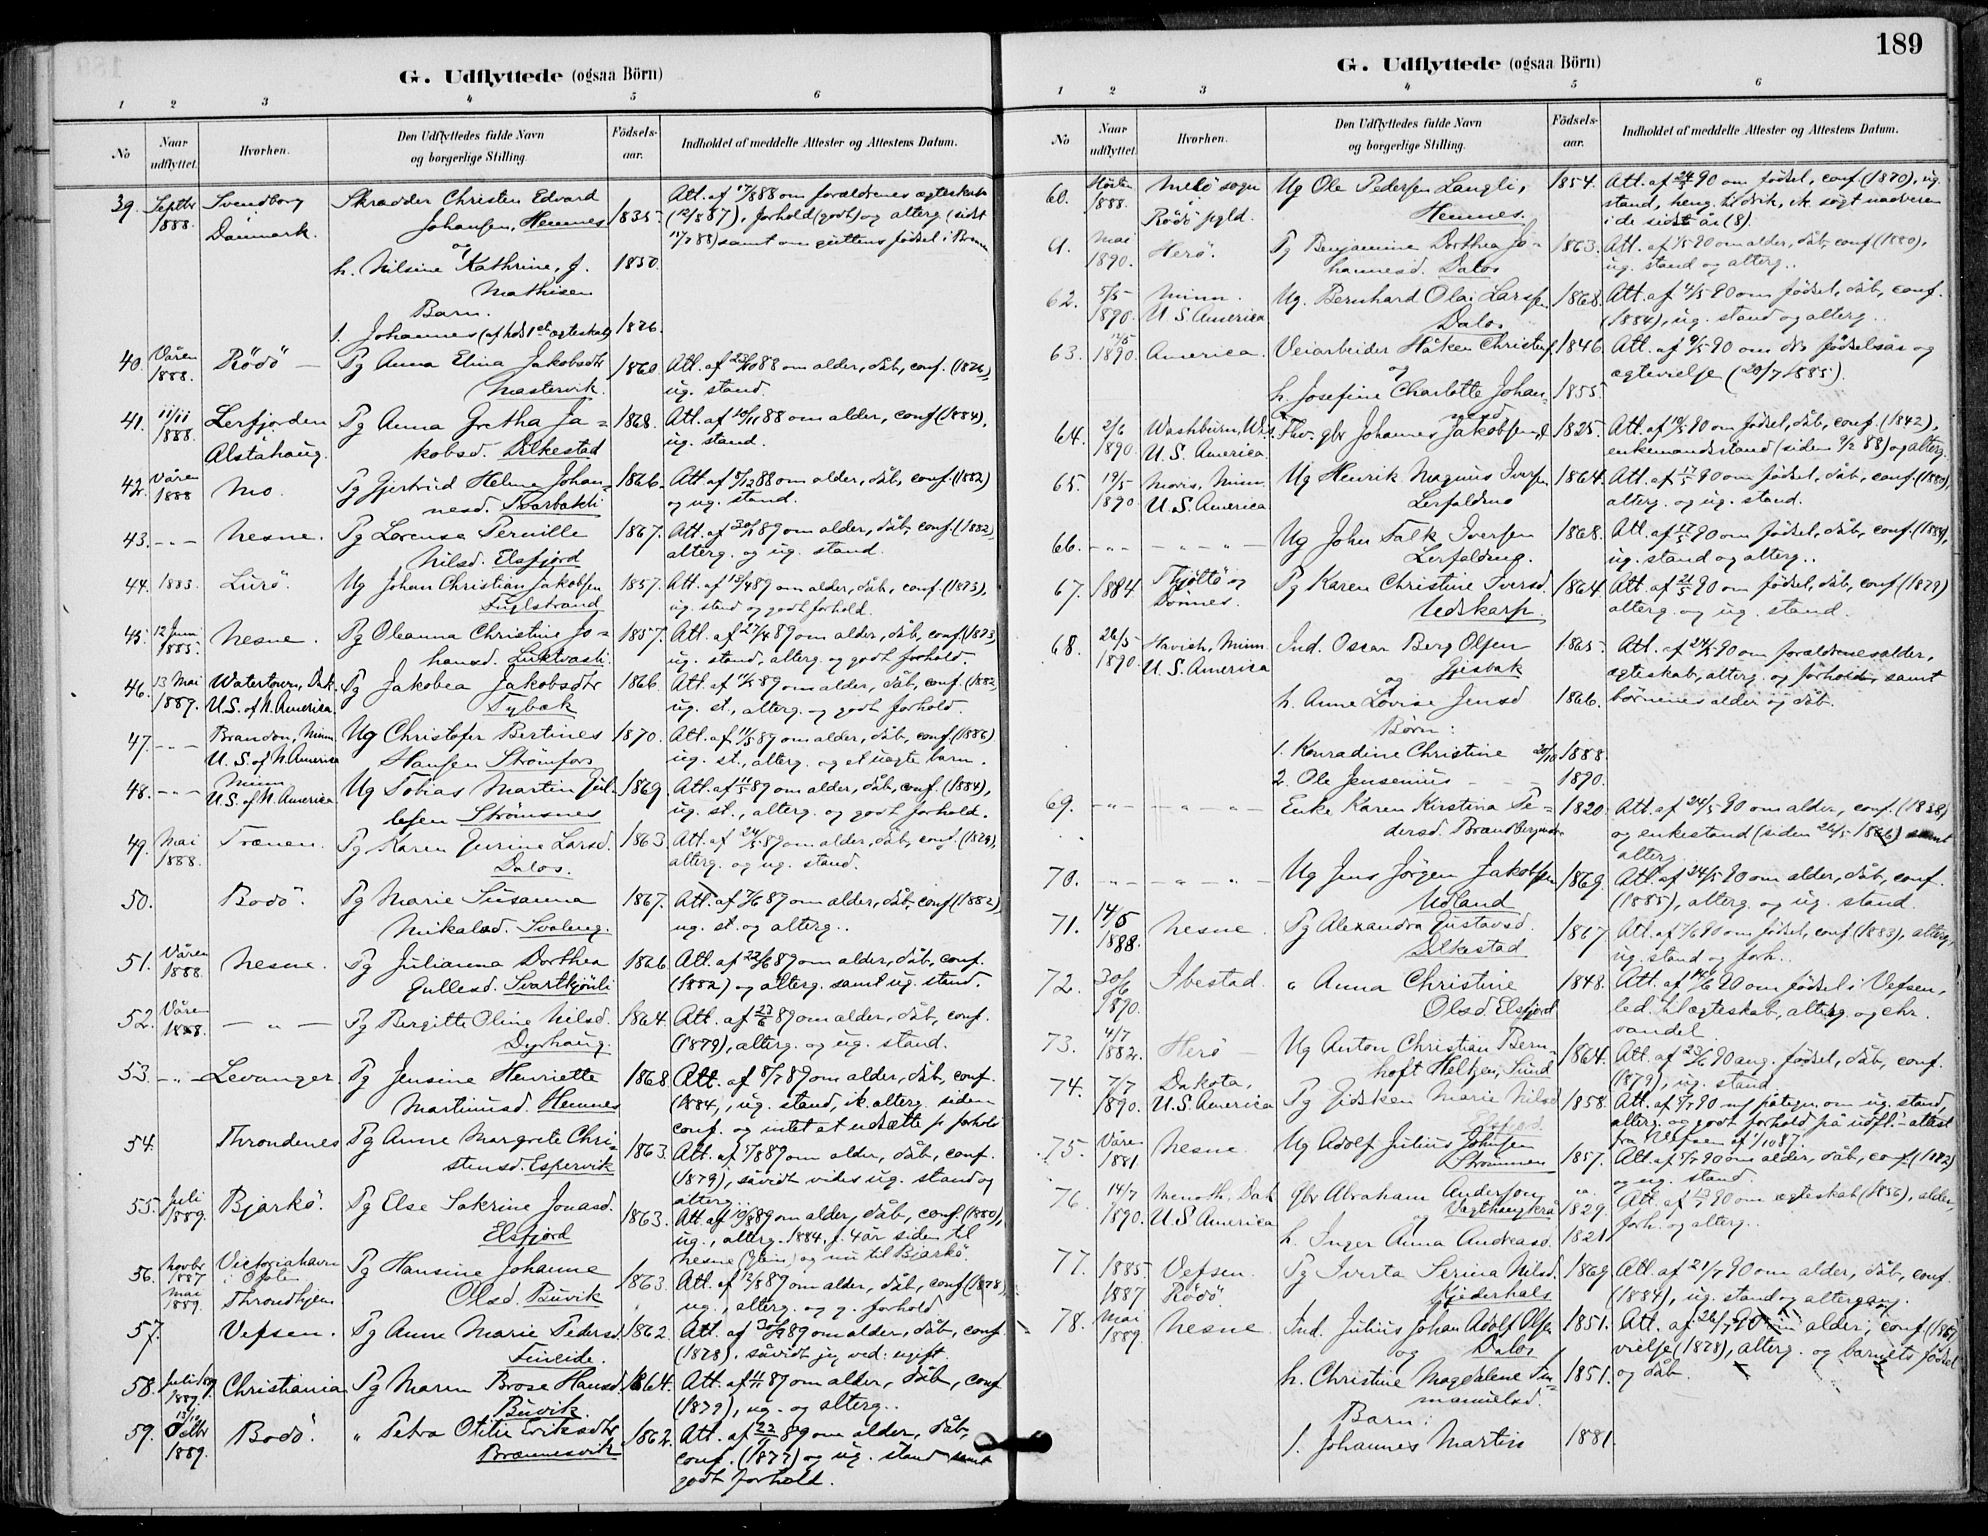 G. Udflyttede (ogsaa Börn)
1 2 3 4 5 6
No Naar udflyttet. Hvorhen. Den Udflyttedes fulde Navn og borgerlige Stilling. Födsels-aar. Indholdet af meddelte Attester og Attestens Datum.
39. Septbr 1888. Svendborg Danmark. Skrædder Christen Edvard Johansen, Hemnes 1835. Att. af 17/888 om forældrenes ægteskab
(12/887), forhold (godt) og alterg (sidst
og
h. Nilsine Kathrine, f. Mathisen 1850.
Barn.
1. Johannes (af hds 1et ægteskab) 1876
40. Våren 1888. Rödö Pg Anna Elina Jakobsdtr Nastervik. 1860. Att. af 23/1088 om alder, dåb, conf. (1876),
ug. stand
41. 11/11 1888. Lerfjorden Alstahaug. Pg Anna Gretha Jakobsd. Dilkestad 1868. Att. af 10/1188 om alder, conf (1884),
ug. stand.
42. Våren 1888 Mo. Pg Gjertrud Helene Johannesd. Tvarbakli 1866. Att af 8/1288 om alder, dåb, conf. (1882)
og ug. stand.
43. -„- Nesne. Pg Lorense Pernille Nilsd. Elsfjord 1867. Att. af 30/189 om alder, dåb, conf. (1882)
alterg. og ug. stand.
44. 1883. Lurö. Ug Johan Christian Jakobsen Fuglstrand 1857. Att. af 12/489 om alder, dåb, conf. (1873),
ug. stand og godt forhold.
45. 12 Juni 1885. Nesne. Pg Oleanna Christine Johansd. Luktvasli 1857. Att. af 27/489 om alder, dåb, conf. (1873)
ug. stand, alterg. og godt forhold.
46. 13 Mai 1889. Watertown, Dak. U.S. of N. America. Pg Jakobea Jakobsdtr Tybæk 1866. Att. af 11/589 om alder, dåb, conf. (1882
ug. st., alterg. og godt forhold.
47. -„- Brandon, Minn U.S. of N. America Ug Christofer Bertines Hansen Strømfors 1870. Att. af 11/589 om alder, dåb, conf. (1886)
ug. st., alterg. og et uægte barn.
48. -„- Minn U.S. of N. America Ug Tobias Martin Strømsnes 1869. Att. af 11/589 om alder, dåb, conf. (1884),
ug. st., alterg. og godt forhold.
49. Mai 1888. Trænen. Pg Karen Jurine Larsd. Dalos. 1863. Att. af 24/589 om alder, dåb, conf. (1879),
alterg. og ug. stand.
50. Bodö. Pg Marie Susanna Nikolaid. Svaleng. 1867. Att. af 7/689 om alder, dåb, conf (1882)
ug. st. og alterg..
51. Våren 1888. Nesne. Pg Julianna Dorthea Gullesd. Svartkjönli 1866 Att. af 22/689 om alder, dåb, conf.
(1882) og alterg. samt ug. stand.
52. Våren 1888. - „ - Pg Bergitte Oline Nilsd. Dyrhaug. 1864. Att. af 27/6 89 om alder, dåb, conf.
(1879), alterg. og ug. stand.
53. -„- Levanger. Pg Jensine Henriette Martinusd. Hemnes 1868. Att. af 8/789 om alder, dåb, conf.
(1884,, ug. stand, ik. alterg. siden
conf. og intet at udsætte p forhold
54. Throndenes Pg Anne Margrete Christensd. Espervik 1863. Att. af 1/889 om alder, dåb, conf.
(1879), såvidt vides ug. stand og
alterg..
55. Juli 1889. Bjarkö. Pg Else Sakrine Jonasd. Elsfjord 1863. Att. af 10/889 om alder, dåb, conf. (1880),
ug., alterg. 1884, f. 4 år siden til
Nesne og nu til Bjarkö
56. Novbr 1887 Mai 1889. Victoriahavn i Ofoten Throndhjem Pg Hansine Johanne Olsd. Buvik 1863 Att. af 12/889 om alder, dåb, conf (1878)
ug., alterg. og g. forhold
57. Vefsen. Pg Anne Marie Pedersd. Fineide. 1862. Att. af 30/989 om alder, dåb, conf
(1878). såvidt jeg ved: ugift
58. Juli 1889. Christiania Pg Maren Brose Hansd. Buvik. 1864. Att. af 4/1189 om alder, dåb, conf
(1879), ug. og alterg..
59. 13/10 Octbr 1889. Bodö. „ Petra Otilie Eriksdtr Brænnesvik 1862. Att. af 22/11 89 om alder, dåb,
conf. (1877) og ug. stand samt
godt forhold.
189
G. Udflyttede (ogsaa Börn)
1 2 3 4 5 6
No Naar udflyttet. Hvorhen. Den Udflyttedes fulde Navn og borgerlige Stilling. Födsels-aar. Indholdet af meddelte Attester og Attestens Datum.
60. Hösten 1888. Melö sogn i Rödö pgld. Ug Ole Pedersen Langli, Hemnes. 1854. Att. af 24/3 90 om födsel, conf. (1870), ug.
stand, ik. sögt nadveren
i de sidste år (8).
61. Mai 1890. Herö. Pg Benjamine Dorthea Johannesd. Dalos 1863. Att. af 1/590 om alder, dåb, conf (1880),
ug. stand og alterg..
62. 5/5 1890. Minn. U.S. America Ug. Bernhard Olai Larsen Dalos 1868. Att. af 4/590 om födsel, dåb, conf.
(1884), ug. stand og alterg..
63. 12/5 1890. America. Veiarbeider Håken Christens. 1846. Att. af 9/590 om ds födselsår og
ægtevielse (20/7 1885).
og
h. Josefine Charlotte Johannesd 1855.
64. 2/6 1890. Washburn, Wis. U.S. America. Fhv. gbr Johannes Jakobsen 1825. Att. af 10/590 om födsel, dåb, conf. (1842),
enkemandsstand (siden 9/2 88) og alterg.
65. 19/5 1890 Moris, Minn. U.S. America Ug Henrik Magnus Iversen Lerfaldrud 1864. Att. af 17/5 90 om födsel, dåb, conf. (1880),
alterg. og ug. stand.
66. -„- - „ - „ - Ug Johan Falk Iversen Lerfaldrug. 1868. Att. af 17/5 90 om födsel, dåb, conf. (1884),
ug. stand og alterg..
67. 1884. Thjöttö og Dönnes. Pg Karen Christine Iversd. Udskarp 1864 Att. af 21/5 90 om födsel, dåb, conf (1879)
alterg. og ug. stand.
68. 26/5 1890. Minn U.S. America Ind. Oscar Berg Olsen Gjesbak 1865. Att. af 24/590 om forældrenes alder,
ægteskab, alterg. og forhold, samt
börnenes alder og dåb.
og
h. Anne Lovise Jensd 1866.
Börn:
1. Konradine Christine 20/10 1888.
2 Ole Jensenius - - 1890.
69. -„- - „ - „ - Enke Karen Kirstina Pedersd. 1820. Att. af 24/590 om alder, conf. (1838)
og enkestand (siden 26/5 1866) samt
alterg.
70. -„- - „ - „ - Ug Jens Jörgen Jakobsen Udland 1869. Att. af 24/590 om alder, dåb, conf.
(1885), alterg. og ug. stand.
71. 14/5 1888. Nesne. Pg Alexandra Gustavsd. Dilkestad 1867 Att. af 1/690 om födsel, conf (1883), alterg,
ug. stand og forh..
72. 30/6 1890. Ibestad. „ Anna Christine Olsd. Elsfjord 1848. Att. af 14/690 om födsel i Vefsen,
led. til ægteskab, alterg. og chr.
vandel
73. 4/7 1882. Herö - Ug Anton Christian Bernhoft Heltzen, Sund 1864. Att. af 23/690 ang. födsel, dåb, conf.
(1879), ug. stand.
74. 7/7 1890. Dakota, U.S. America Pg Gidsken Marie Nilsd Elsfjord 1858. Att. af 5/790 m påtegn. om ug. stand,
alterg. og godt forhold på udfl.-attest
fra Vefsen af 1/1087.
75. Våren 1881 Nesne. Ug Adolf Julius Johnsen Strømmen 1857. Att. af 5/790 om alder, dåb, conf (1872)
og ug. stand.
76. 14/7 1890. Menoth, Dak U.S. America gbr Abraham Andersen, ca. 1829. Att. af 13/7 90 om ægteskab (1856), alder,
forh. og alterg..
og
h. Inger Anna Andreasd. 1821
77. 1885. 1887 Vefsen. Rödö. Pg Iverta Serina Nilsd. Kjederhals 1869 Att. af 21/790 om alder, dåb, conf.
(1884), ug. stand og altergang.
78. Mai 1889. Nesne. Ind. Julius Johan Adolf Olsen Dalos 1851. Att. af 26/790 om alder, conf. (1867)
vielse (1878), alterg. og barnets födsel
og dåb.
og
h. Christine Magdalene Immanuelsd. 1851.
Barn:
1. Johannes Martin 1881.